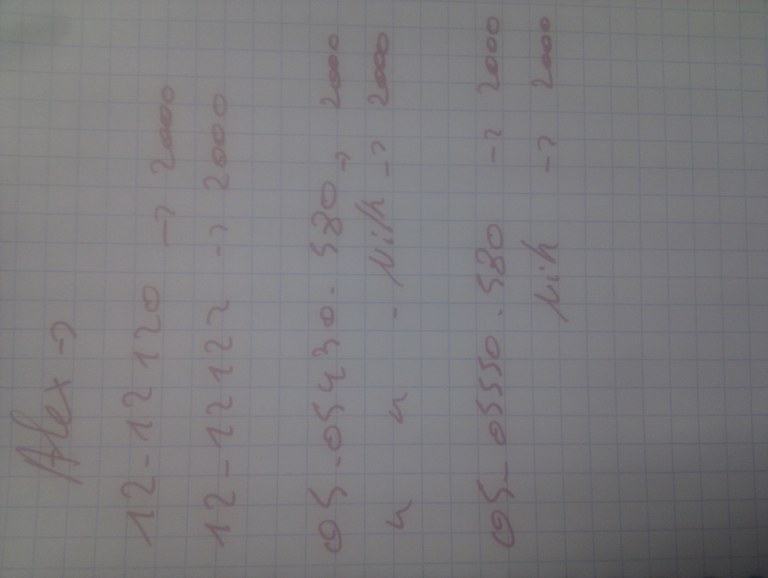 Alex →
12-12120 → 2000
12-12122 → 2000
05-05430.580 → 2000
" " - Nih → 2000
05-05550.580 → 2000
Nih → 2000